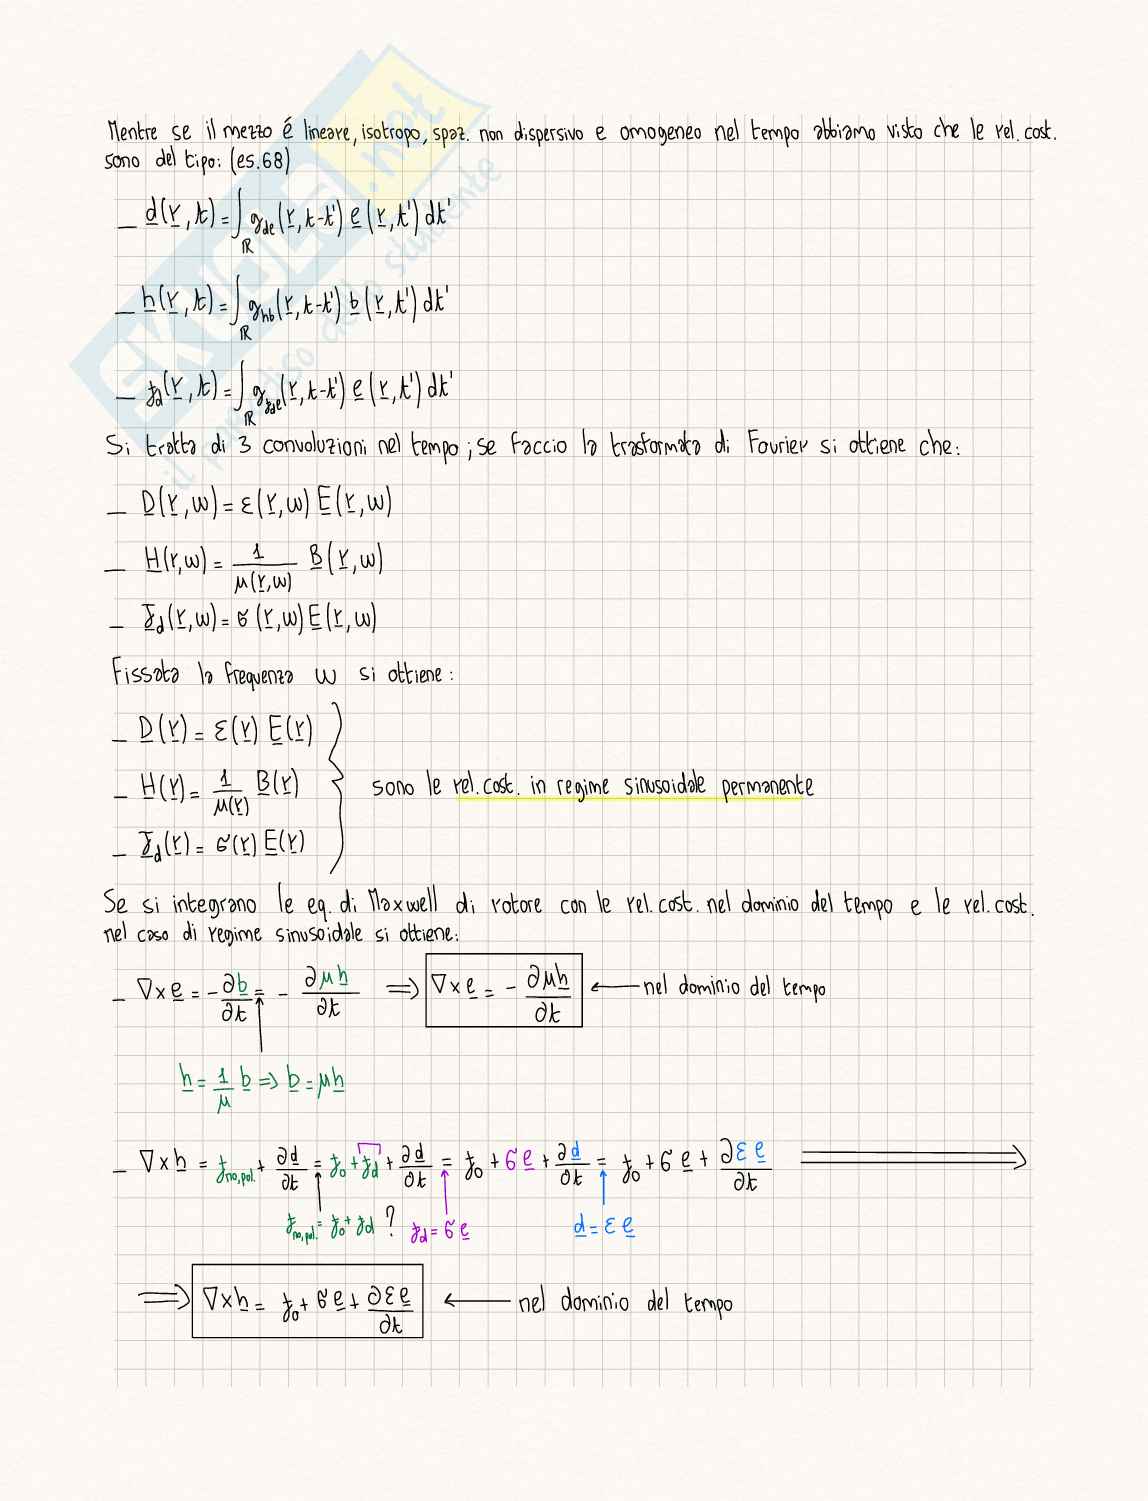 Mentre se il mezzo é lineare, isotropo, spaz. non dispersivo e omogeneo nel tempo abbiamo visto che le rel. cost.
sono del tipo: (es.68)
_ d(r,t) = ∫_ℝ g_de(r,t-t') e(r,t') dt'
_ h(r,t) = ∫_ℝ g_hb(r,t-t') b(r,t') dt'
_ j_d(r,t) = ∫_ℝ g_jde(r,t-t') e(r,t') dt'
Si tratta di 3 convoluzioni nel tempo; se faccio la trasformata di Fourier si ottiene che:
_ D(r,ω) = ε(r,ω) E(r,ω)
_ H(r,ω) = 1/μ(r,ω) B(r,ω)
_ J_d(r,ω) = σ(r,ω) E(r,ω)
Fissata la frequenza ω si ottiene:
_ D(r) = ε(r) E(r)
_ H(r) = 1/μ(r) B(r) } sono le rel. cost. in regime sinusoidale permanente
_ J_d(r) = σ(r) E(r)
Se si integrano le eq. di Maxwell di rotore con le rel. cost. nel dominio del tempo e le rel. cost.
nel caso di regime sinusoidale si ottiene:
_ ∇×e = -∂b/∂t = -∂μh/∂t ⇒ ∇×e = -∂μh/∂t ← nel dominio del tempo
h = 1/μ b ⇒ b = μh
_ ∇×h = j_no,pol. + ∂d/∂t = j_0 + j_d + ∂d/∂t = j_0 + σe + ∂d/∂t = j_0 + σe + ∂εe/∂t ⇒
j_no,pol. = j_0 + j_d ? j_d = σe d = εe
⇒ ∇×h = j_0 + σe + ∂εe/∂t ← nel dominio del tempo
SKUOLA.net
il paradiso dello studente